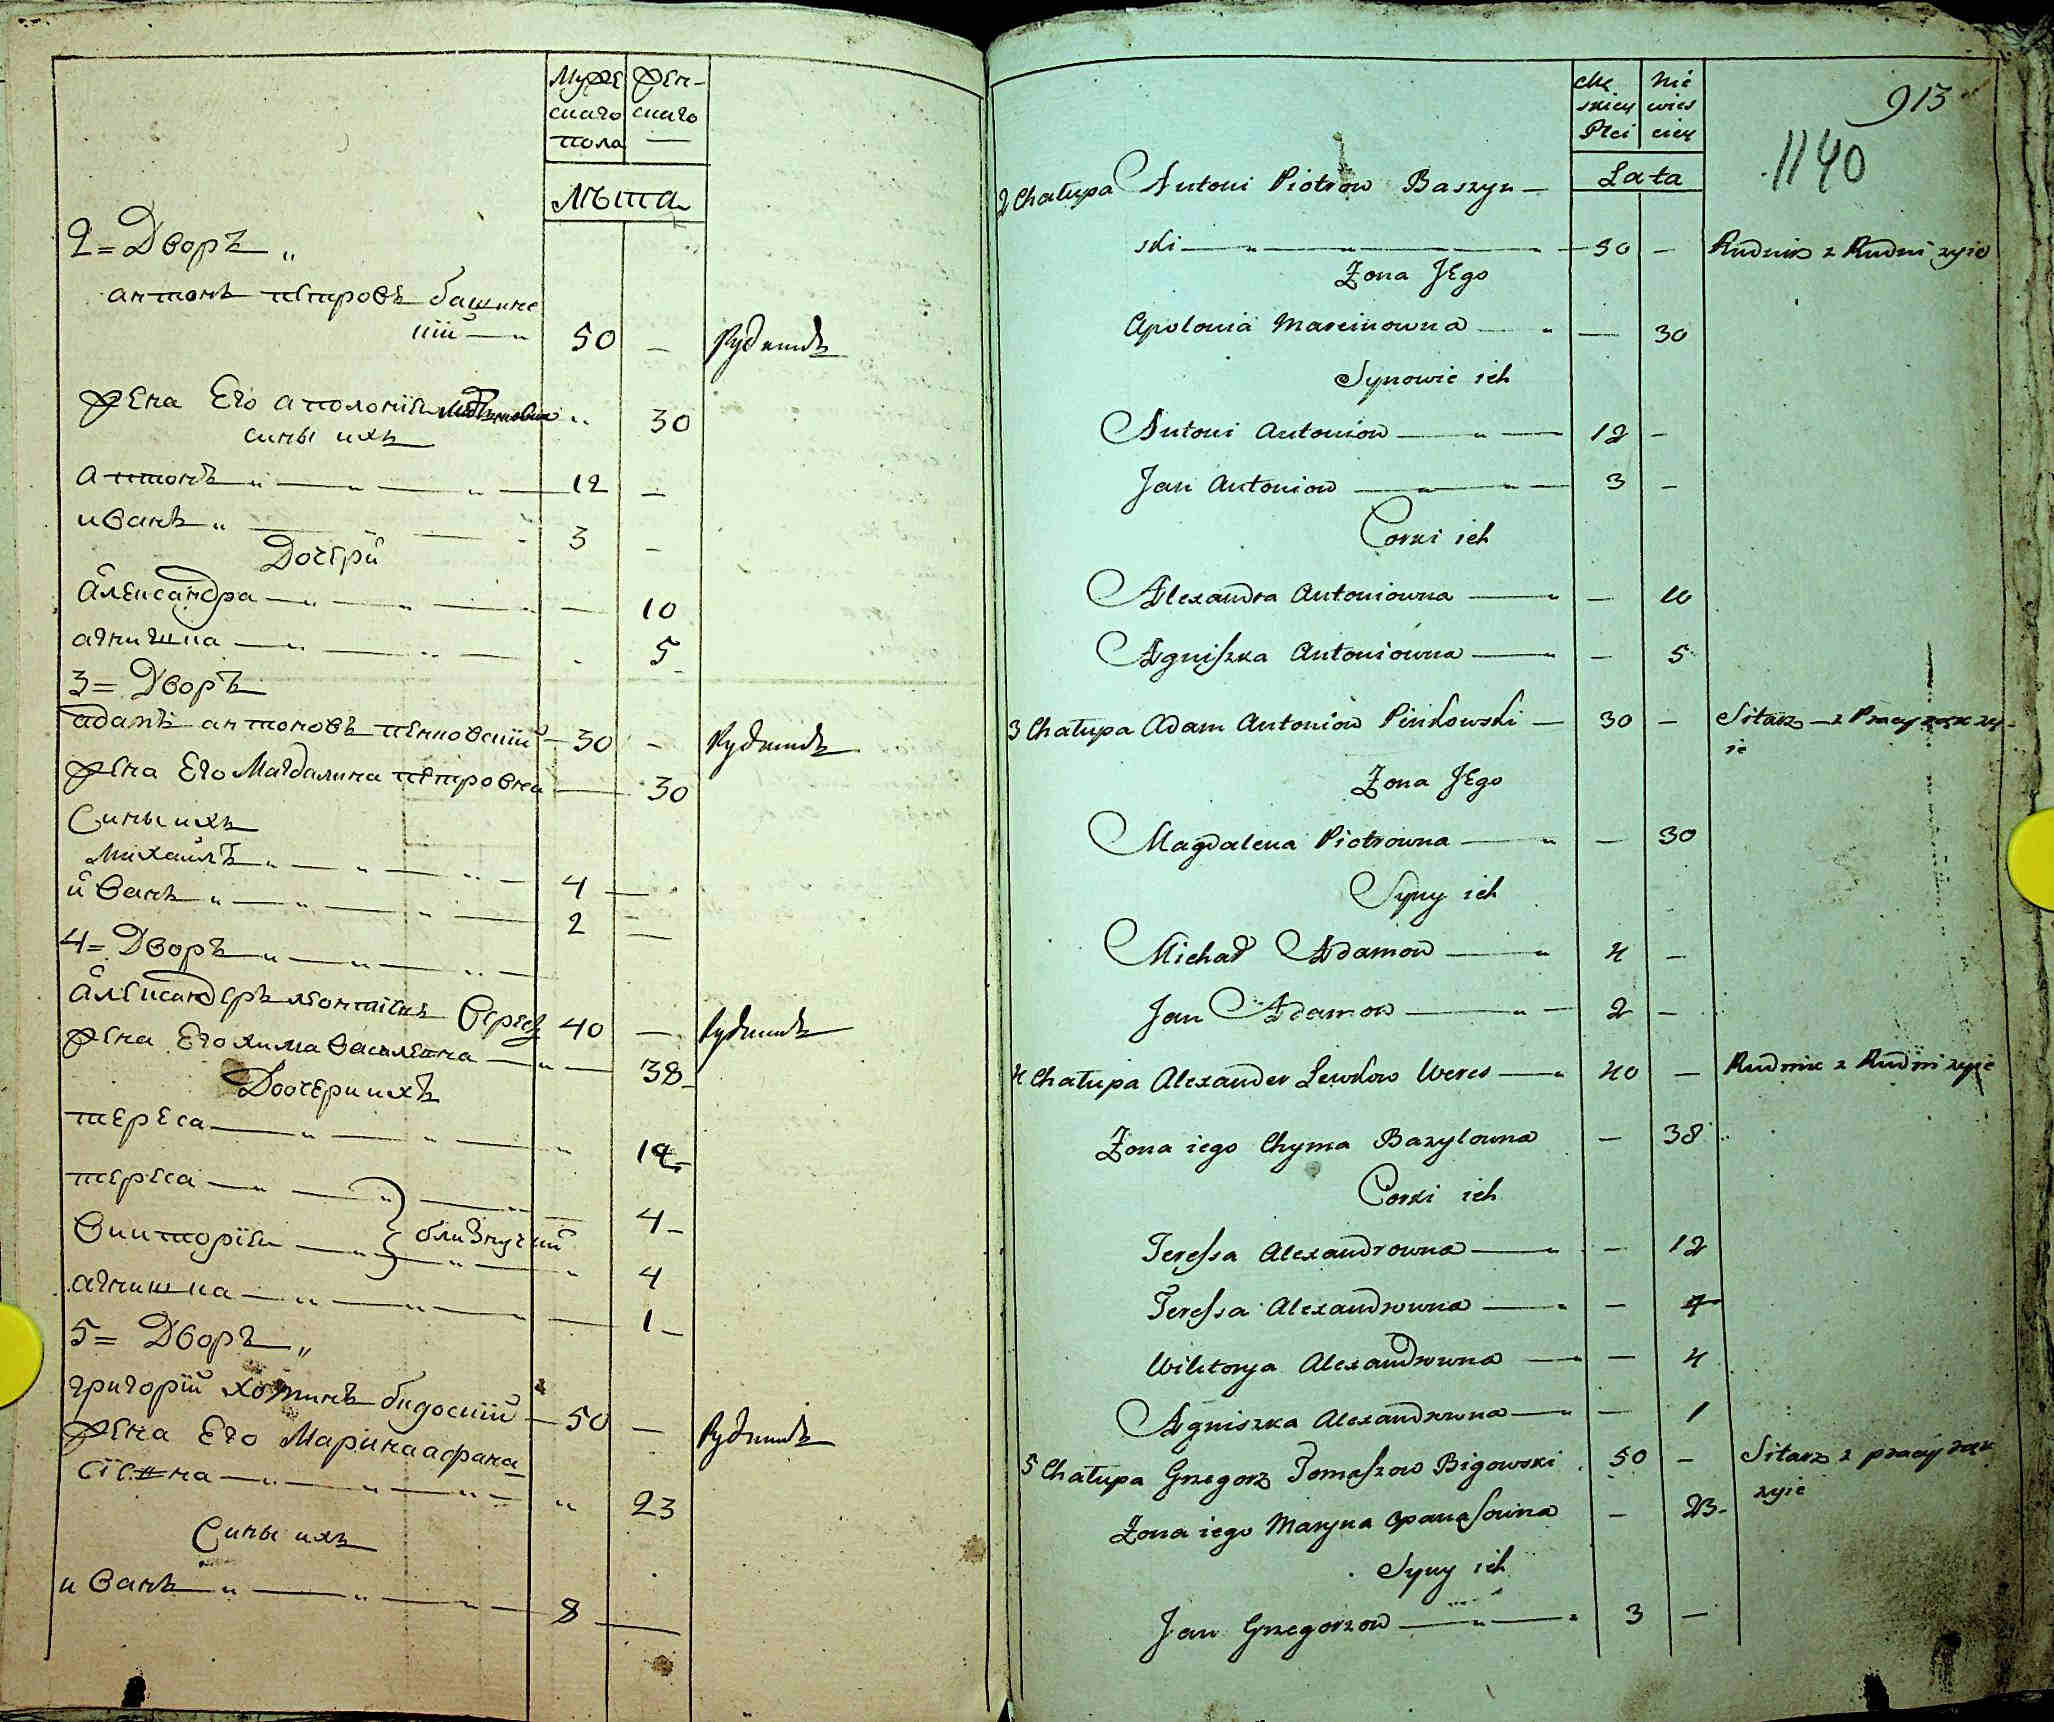 Муже
скаго
пола
жен-
скаго
—
лѣта
2 = Дворъ „
антонъ петровъ башинс
кій — „ 50 — Рудникъ
жена Его аполонія „ 30
сины ихъ
антонъ „ — „ — „ — 12 —
иванъ „ — — - 3 —
Дочери
александра — „ — „ — — 10
агнишка — „ — „ — . 5
3 = Дворъ
адамъ антоновъ пенковскій — 30 — Рудникъ
жена Его Магдалина петровна — 30
Сины ихъ
Михаилъ „ — „ — „ — 4 —
иванъ „ — „ — „ — 2 —
4 = Дворъ „ — „ — „ —
александеръ леонтіевъ Вересъ 40 — Рудникъ
жена Его хима Василевна — „ — 38
Доочери ихъ
тереса — „ — „ — „ 12
тереса — „ — „ — „ — 4 —
Викторія — „ — близнучки „ — „ 4
агнишка — „ — „ — 1 —
5 = Дворъ „
григорій хоминъ бидоскій — 50 — Рудникъ
жена Его Марина афана-
сіевна — „ — „ — „ — „ 23
Сины ихъ
иванъ „ — „ — „ — 8 —
Mę
skiey
Płci
Nie
wies
ciey
Lata
913
1140
2 Chałupa Antoni Piotrow Baszyn —
ski — „ — „ — 50 — Rudnik z Rudni zyie
Żona JEgo
Apolonia Marcinowna — „ — 30
Synowie ich
Antoni Antoniow — „ — 12 —
Jan Antoniow — „ — 3 —
Corki ich
Alexandra Antoniowna — „ — 10
Agniszka Antoniowna — „ — 5
3 Chałupa Adam Antoniow Pinkowski — 30 — Sitarz — z Pracy rąk zy-
ie
Żona JEgo
Magdalena Piotrowna — „ — 30
Syny ich
Michał Adamow — „ 4 —
Jan Adamow — „ — 2 —
4 Chałupa Alexander Lewkow Weres — „ 40 — Rudnik z Rudni zyie
Żona iego Chyma Bazylowna — 38
Corki ich
Teressa Alexandrowna — „ — 12
Teressa Alexandrowna — „ — 4
Wiktorya Alexandrowna — „ — 4
Agniszka Alexandrowna — „ — 1
5 Chałupa Grzegorz Tomaszow Bigowski . 50 — Sitarz z pracy rąk
zyie
Żona iego Maryna Opanasowna — 23 -
Syny ich
Jan Grzegorzow — „ — „ 3 —